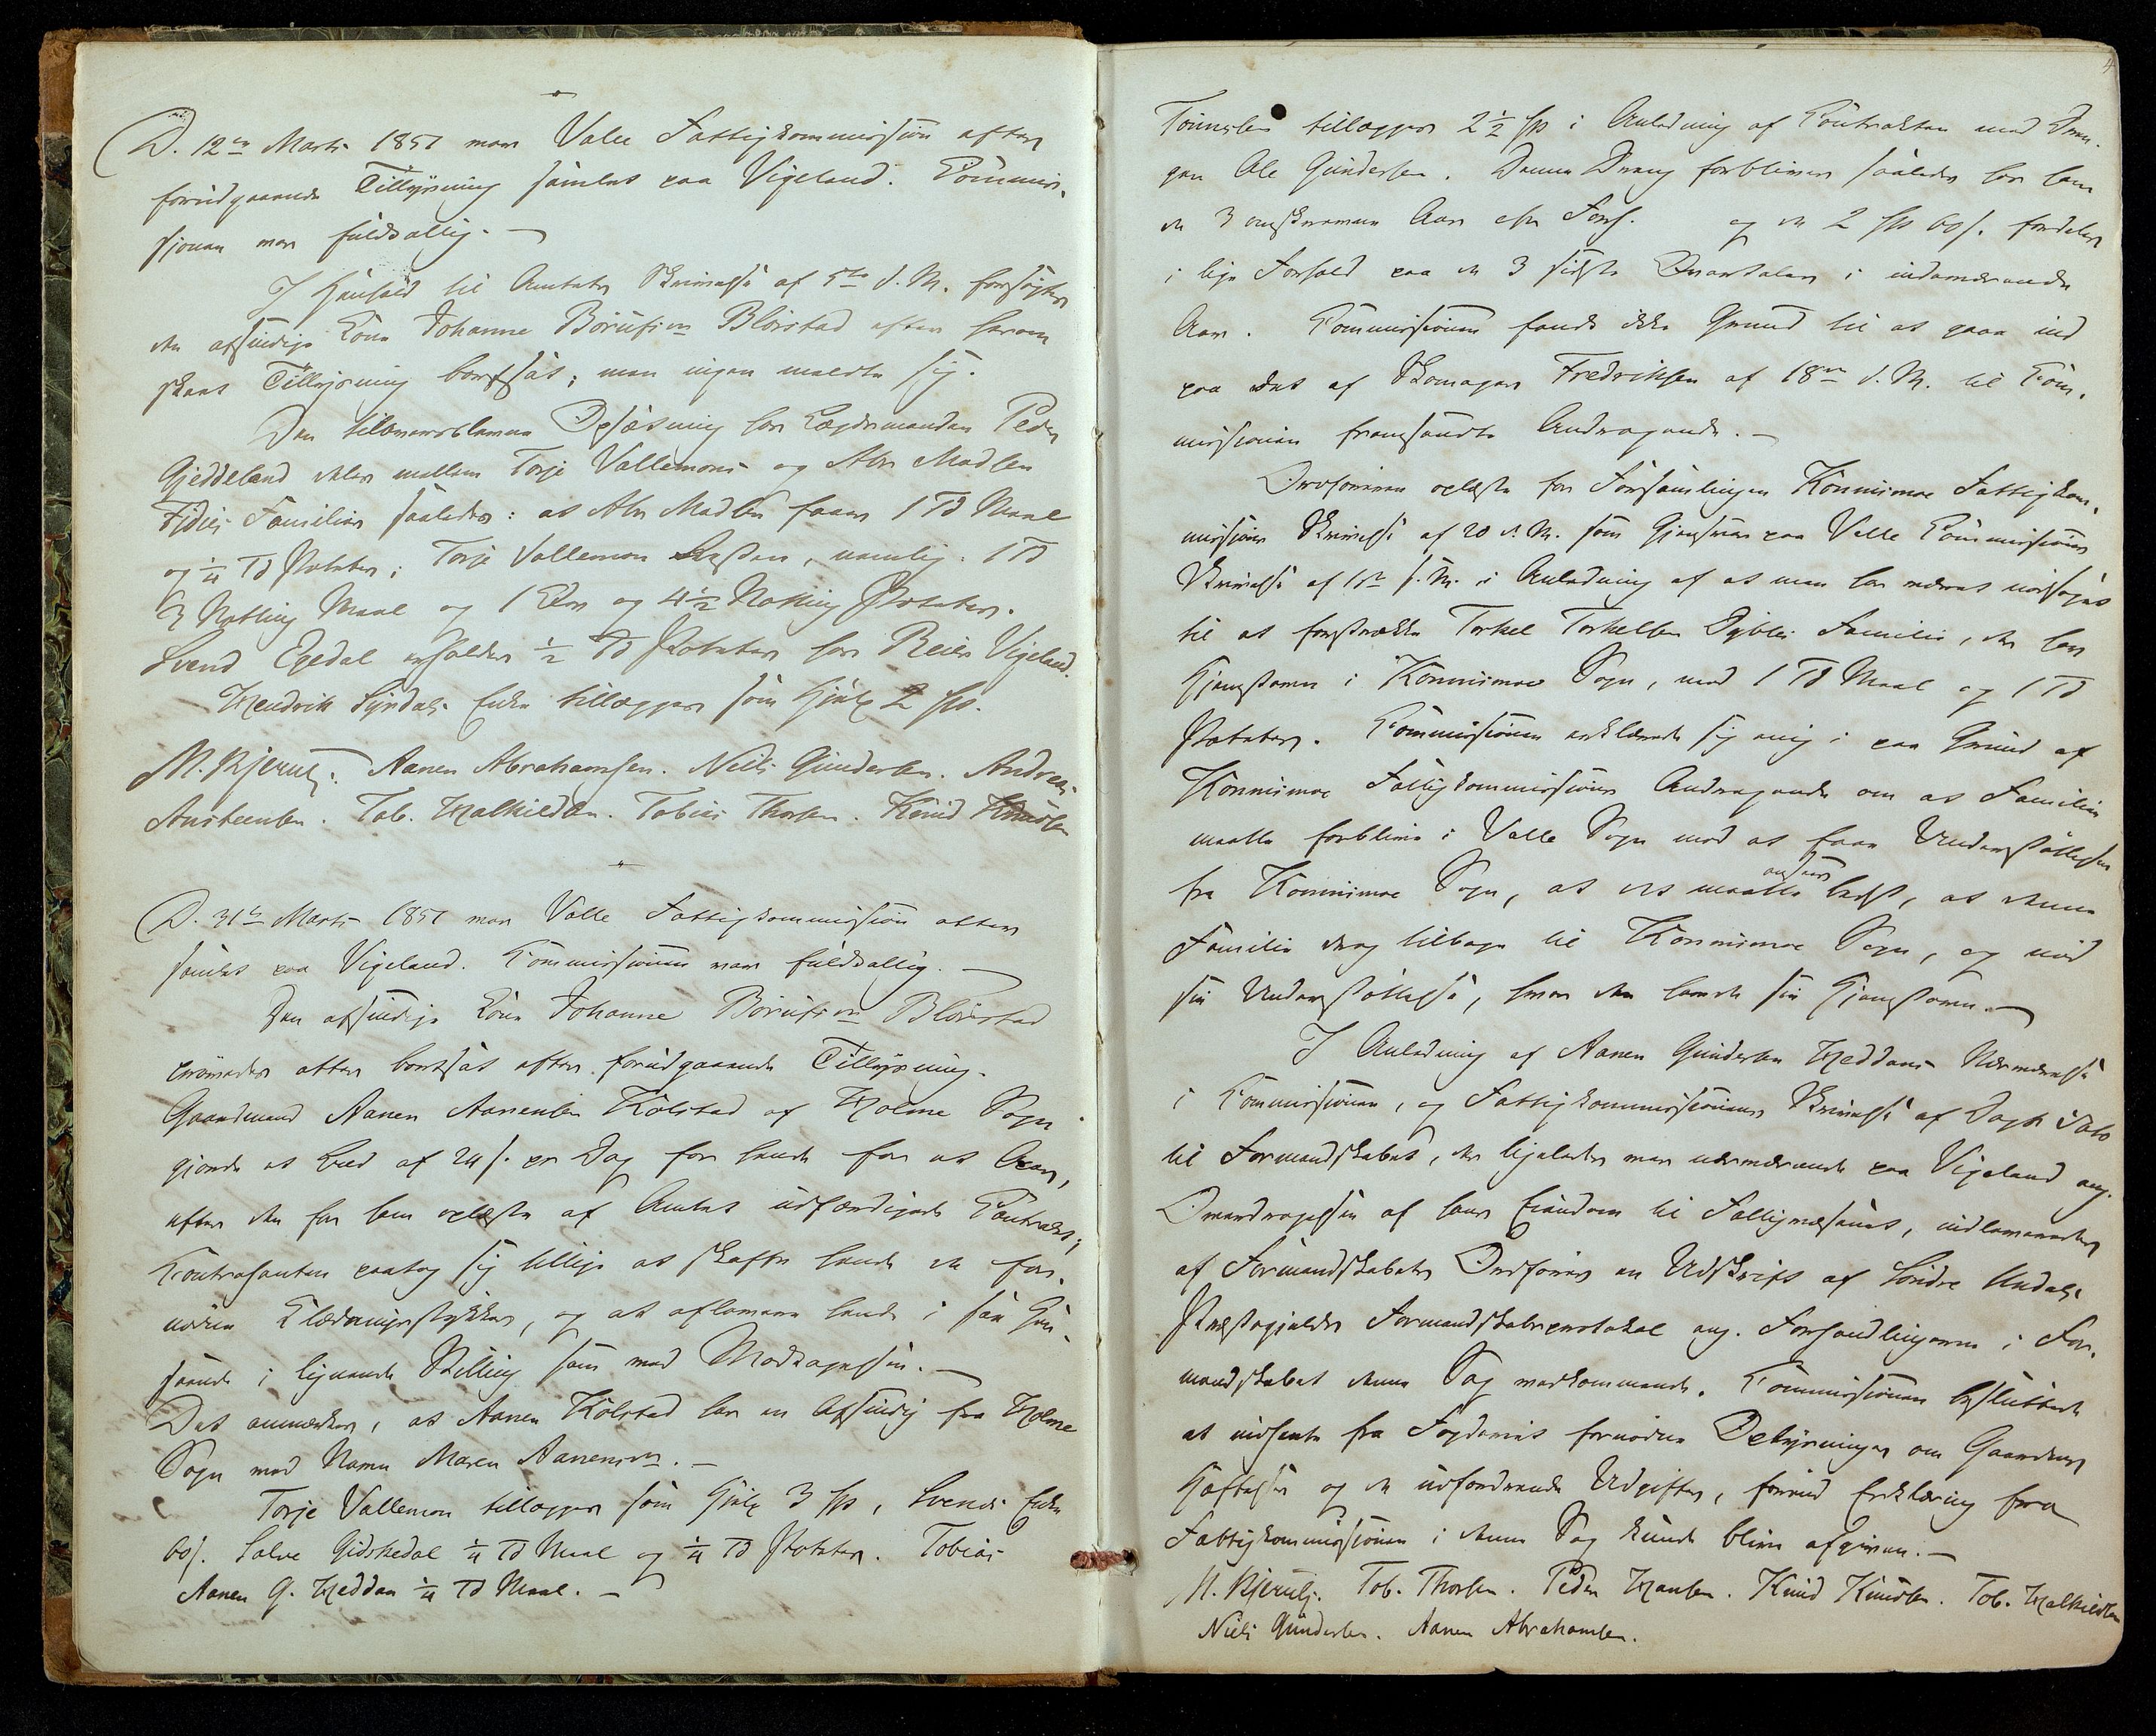 D. 12te Marts 1851 var Valle Fattigkommission efter
forudgaaende Tillysning samlet paa Vigeland. Commis-
sionen var fuldtallig. —
I Henhold til Amtets Skrivelse af 5te d. M. forsøgtes
den afsindige Kone Johanne Børufsen Bloistad efter
skeet Tillysning bortsat; men ingen meldte sig.
Den tiloversblevne hos Lægdsmanden Peder
Gjeddeland deles mellem Torje Vallemoens og Abr Madsen
Familier saaledes: at Abr Madsen faaer 1 Td Meel
og ¼ Td Poteter; Torje Vallemoen Resten, nemlig: 1 Td
Meel og 1 og 4½ Poteter.
Svend Egedal erholder ½ Td Poteter hos Reier Vigeland.
Hendrik Syrdals Enke tillægges som Hjælp 2 Sp.
M. Bjerum. Aanen Abrahamsen. Niels Gundersen. Andreas
Austensen. Tob. Halkildsen. Tobias Thorsen. Knud Knudsen
D. 31te Marts 1851 var Valle Fattigkommission atter
samlet paa Vigeland. Commissionen var fuldtallig. —
Den afsindige Kone Johanne Børufsen Bloistad
prøvedes atter bortsat efter forudgaaende Tillysning.
Gaardmand Aanen Aanensen Kolstad af Holme Sogn
gjorde et Bud af 24 s. pr Dag for hende for et Aar,
efter den for ham oplæste af Amtet udfærdigede Contract;
Contrahenten paatog sig tillige at skaffe hende de for-
nødne Klædningsstykker, og at aflevere hende i saa Hen-
seende i lignende Stilling som ved Modtagelsen. —
Det anmærkes, at Aanen Kolstad har en Afsindig fra Holme
Sogn ved Navn Maren Aanensen. —
Torje Vallemoen tillægges som Hjælp 3 Sp, Svends Enke
60 s. Salve Gidskedal ¼ Td Meel og ¼ Td Poteter. Tobias
Aanen G. Heddan ¼ Td Meel. —
4
tillægges 2½ Sp i Anledning af Contrakten med Dren-
gen Ole Gundersen. Denne Dreng forbliver saaledes hos ham
de 3 Aar og de 2 Sp 60 s. fordeles
i lige Forhold paa de 3 sidste Qvartaler i indeværende
Aar. Commissionen fandt ikke Grund til at gaae ind
paa det af Skomager Fredriksen af 18de d. M. til Com-
missionen fremsendte Andragende. —
Ordføreren oplæste for Forsamlingen Konnismoe Fattigkom-
missions Skrivelse af 20 d. M. som Gjensvar paa Valle Commissions
Skrivelse af 10de s. M. i Anledning af at man har været nødsaget
til at forstrække Torkel Torkelsen Dybles Familie, der har
Hjemstavn i Konnismoe Sogn, med 1 Td Meel og 1 Td
Poteter. Commissionen erklærede sig enig i paa Grund af
Konnismoe Fattigkommissions Andragende om at Familien
maatte forblive i Valle Sogn med at faae Understøttelsen
fra Konnismoe Sogn, at det maatte ansees bedst, at denne
Familie drog tilbage til Konnismoe Sogn, og nød
sin Understøttelse, hvor den havde sin Hjemstavn. —
I Anledning af Aanen Gundersen Heddans Nærværelse
i Commissionen, og Fattigkommissionens Skrivelse af Dags Dato
til Formandskabet, der ligeledes var nærværende paa Vigeland ang.
Overdragelsen af hans Eiendom til Fattigvæsenet, indleveredes
af Formandskabets Ordfører en Udskrift af Søndre Undals
Præstegjelds Formandskabsprotokol ang. Forhandlingerne i For-
mandskabet denne Sag vedkommende. Commissionen besluttede
at indhente fra Fogderiet fornødne Oplysninger om Gaardens
Hæftelser og de udfordrende Udgifter, forind Erklæring fra
Fattigkommissionen i denne Sag kunde blive afgiven. —
M. Bjerum. Tob. Thorsen. Peder Hansen. Knud Knudsen. Tob. Halkildsen
Niels Gundersen. Aanen Abrahamsen.